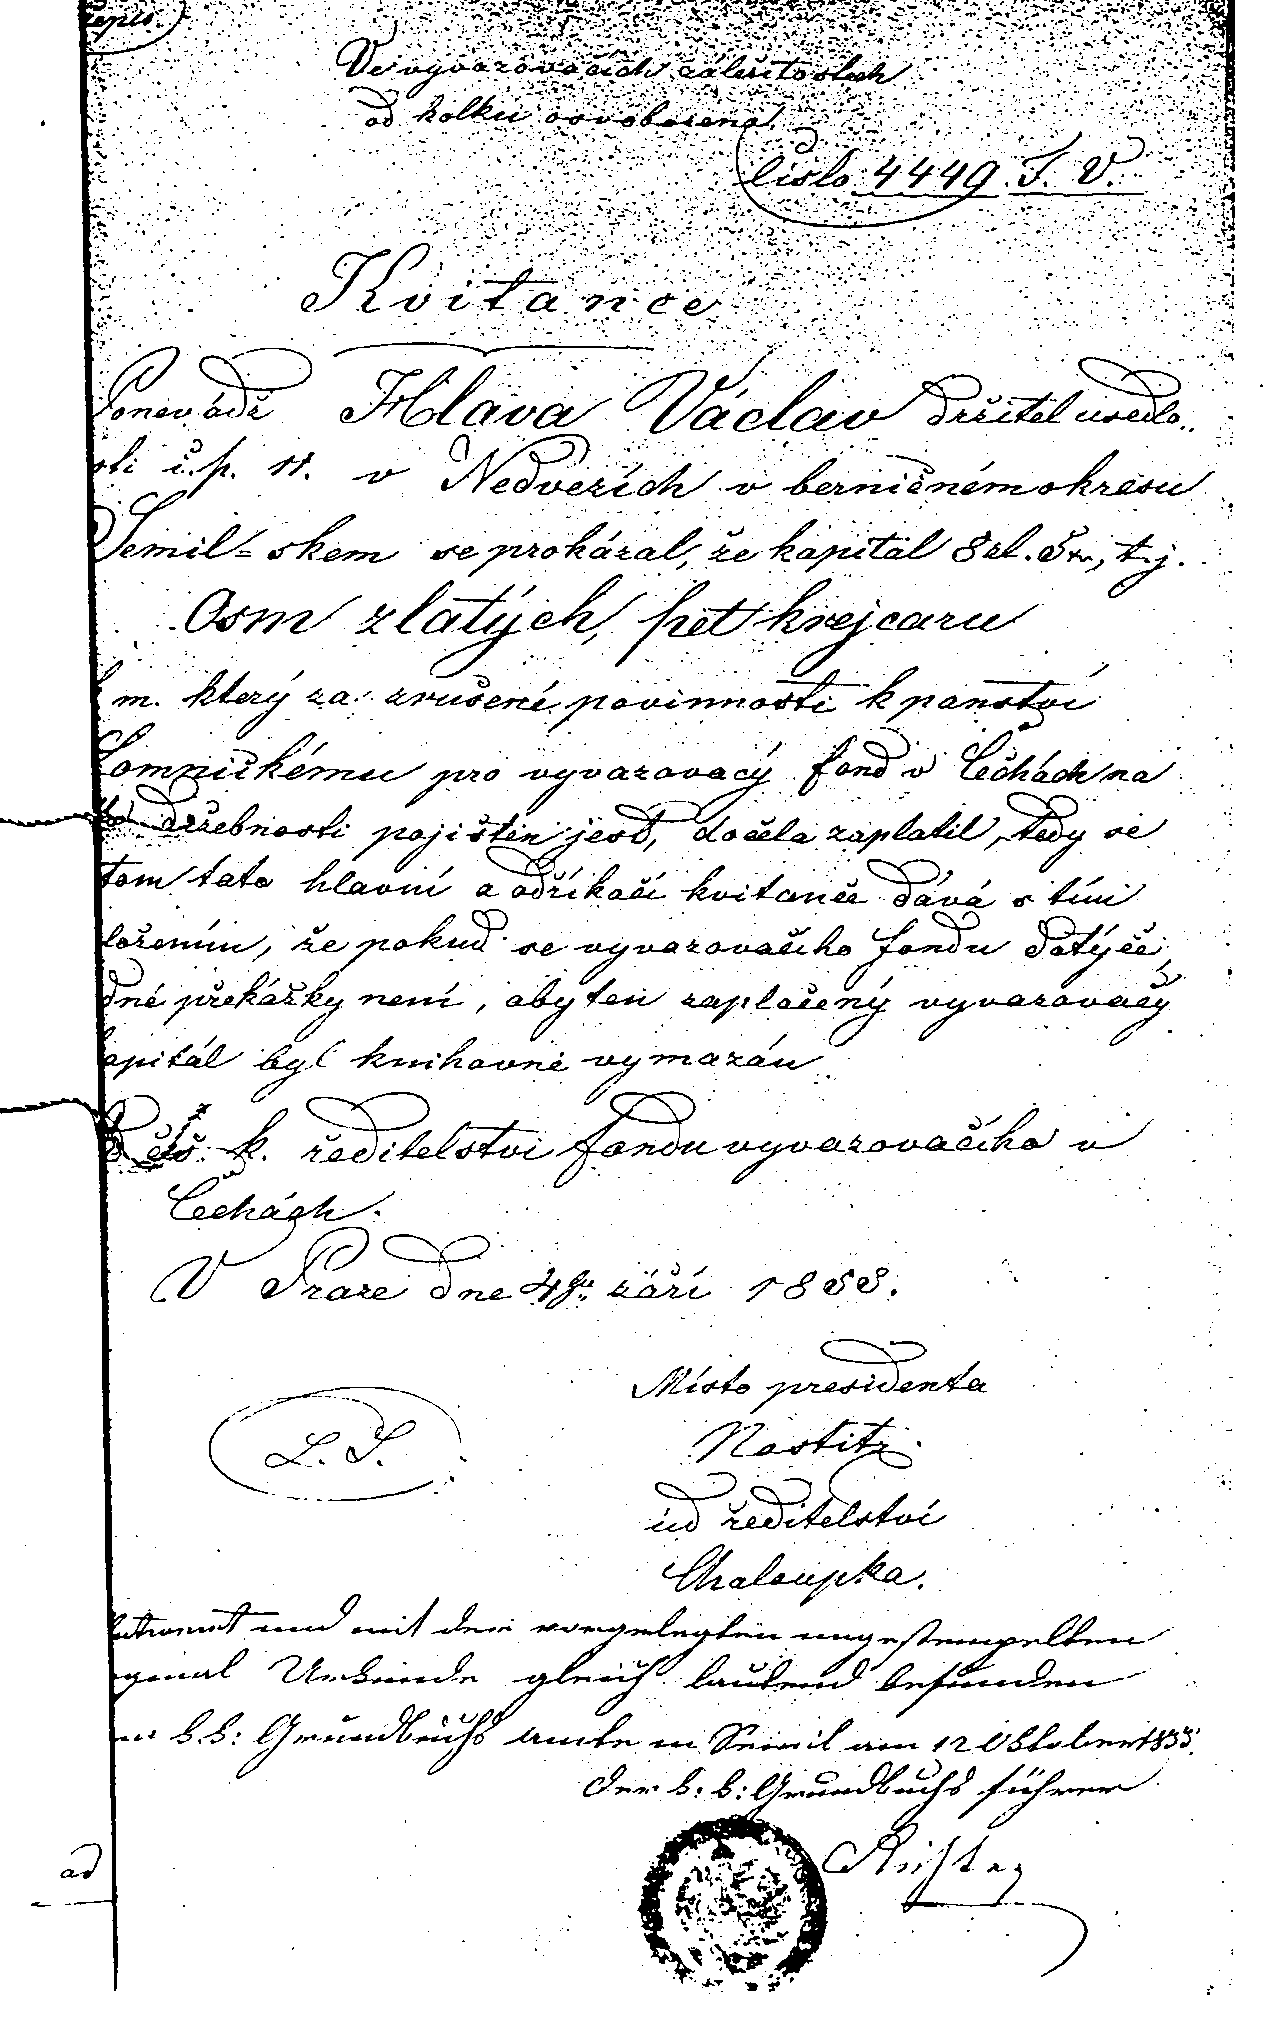 Ve vyvazovacích záležitostech
od kolku osvobozeno.
Číslo 4449. J. V.
Kvitance
Ponevádž Hlava Václav držitel usedlo-
sti č. p. 11. v Nedvezích v berničném okresu
Semil-skem se prokázal, že kapitál 8 zl. 5 kr., t. j.
Osm zlatých, pet krejcaru
m. který za zrušené povinnosti k panství
Lomničkému pro vyvazovací fond v Čechách na
držebnosti pojištěn jest, docela zaplatil, tedy se
tom tato hlavní a odříkací kvitance dává s tím
ložením, že pokud se vyvazovacího fondu dotýče,
dné překážky není, aby ten zaplacený vyvazovací
kapitál byl knihovně vymazán
k. ředitelství fondu vyvazovačího v
Čechách.
V Praze dne 48. září 1855.
Místo presidenta
Nostitz.
L. S.
od ředitelství
Chaloupka.
und mit der vorgelegten ungestempelten
ginal Urkunde gleich lautend befunden
k. k: Grundbuchs Amte in Semil am 12 Oktober 1855.
Der k. k: Grundbuchs führer
ad